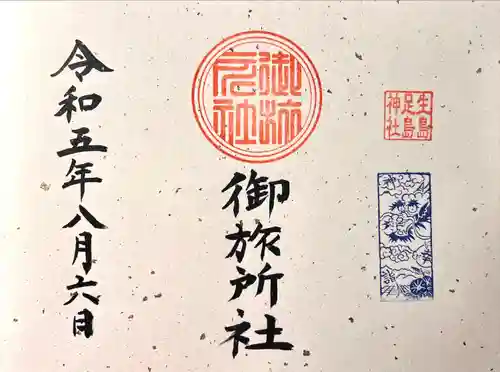 生島
足島
神社
御旅所社
令和五年八月六日